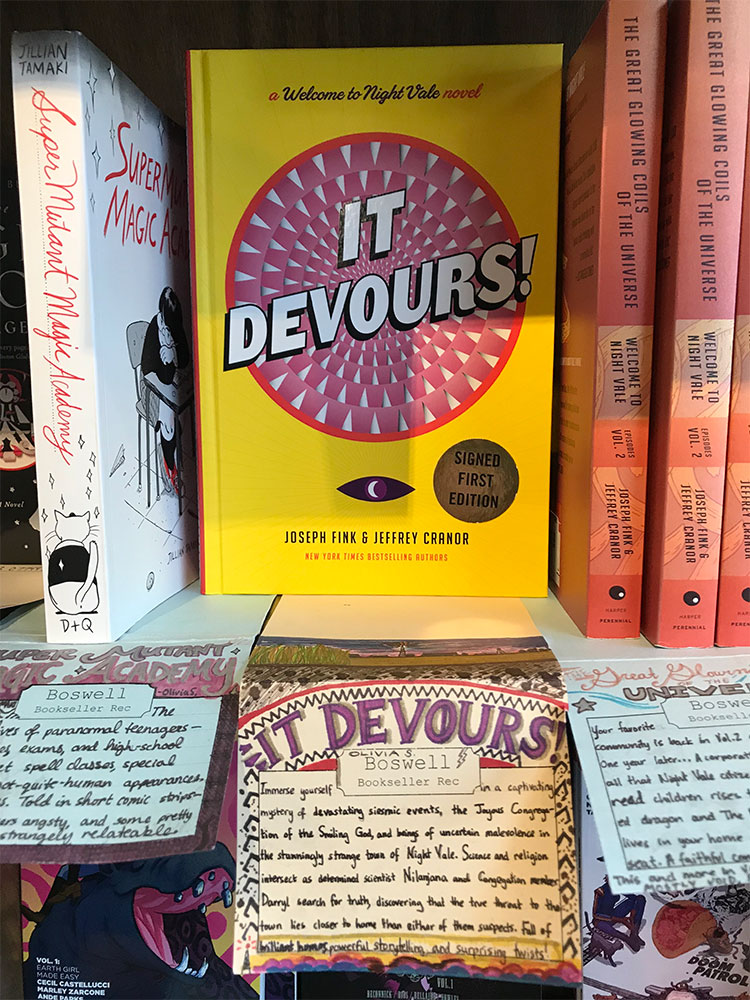 JILLIAN
TAMAKI
Super Mutant Magic Academy
D+Q
SUPER
MAGIC
JILLIAN
a Welcome to Night Vale novel
IT
DEVOURS!
SIGNED
FIRST
EDITION
JOSEPH FINK & JEFFREY CRANOR
NEW YORK TIMES BESTSELLING AUTHORS
THE GREAT GLOWING COILS
OF THE UNIVERSE
WELCOME TO
NIGHT VALE
EPISODES
VOL. 2
JOSEPH FINK &
JEFFREY CRANOR
HARPER
PERENNIAL
THE GREAT GLOWING COILS
OF THE UNIVERSE
WELCOME TO
NIGHT VALE
EPISODES
VOL. 2
JOSEPH FINK &
JEFFREY CRANOR
HARPER
PERENNIAL
SUPER MUTANT
MAGIC ACADEMY
-Olivia S.
Boswell
Bookseller Rec
The
ives of paranormal teenagers—
es, exams, and high-school
et spell classes, special
not-quite-human appearances.
s. Told in short comic strips-
ers angsty, and some pretty
strangely relatable.
IT DEVOURS!
OLIVIA S.
Boswell
Bookseller Rec
Immerse yourself in a captivating
mystery of devastating siesmic events, the Joyous Congrega-
tion of the Smiling God, and beings of uncertain malevolence in
the stunningly strange town of Night Vale. Science and religion
intersect as determined scientist Nilanjana and Congregation member
Darryl search for truth, discovering that the true threat to the
town lies closer to home than either of them suspects. Full of
brilliant humor, powerful storytelling, and surprising twists!
Great Glowing
UNIVE
Boswell
Bookselle
Your favorite
community is back in Vol. 2
One year later... A corporat
all that Night Vale citize
read children rises
ed dragon and The
lives in your home
seat. A faithful com
This and more
VOL. 1:
EARTH GIRL
MADE EASY
CECIL CASTELLUCCI
MARLEY ZARCONE
ANDE PARKS
VOL. 1
DOOM
PATROL